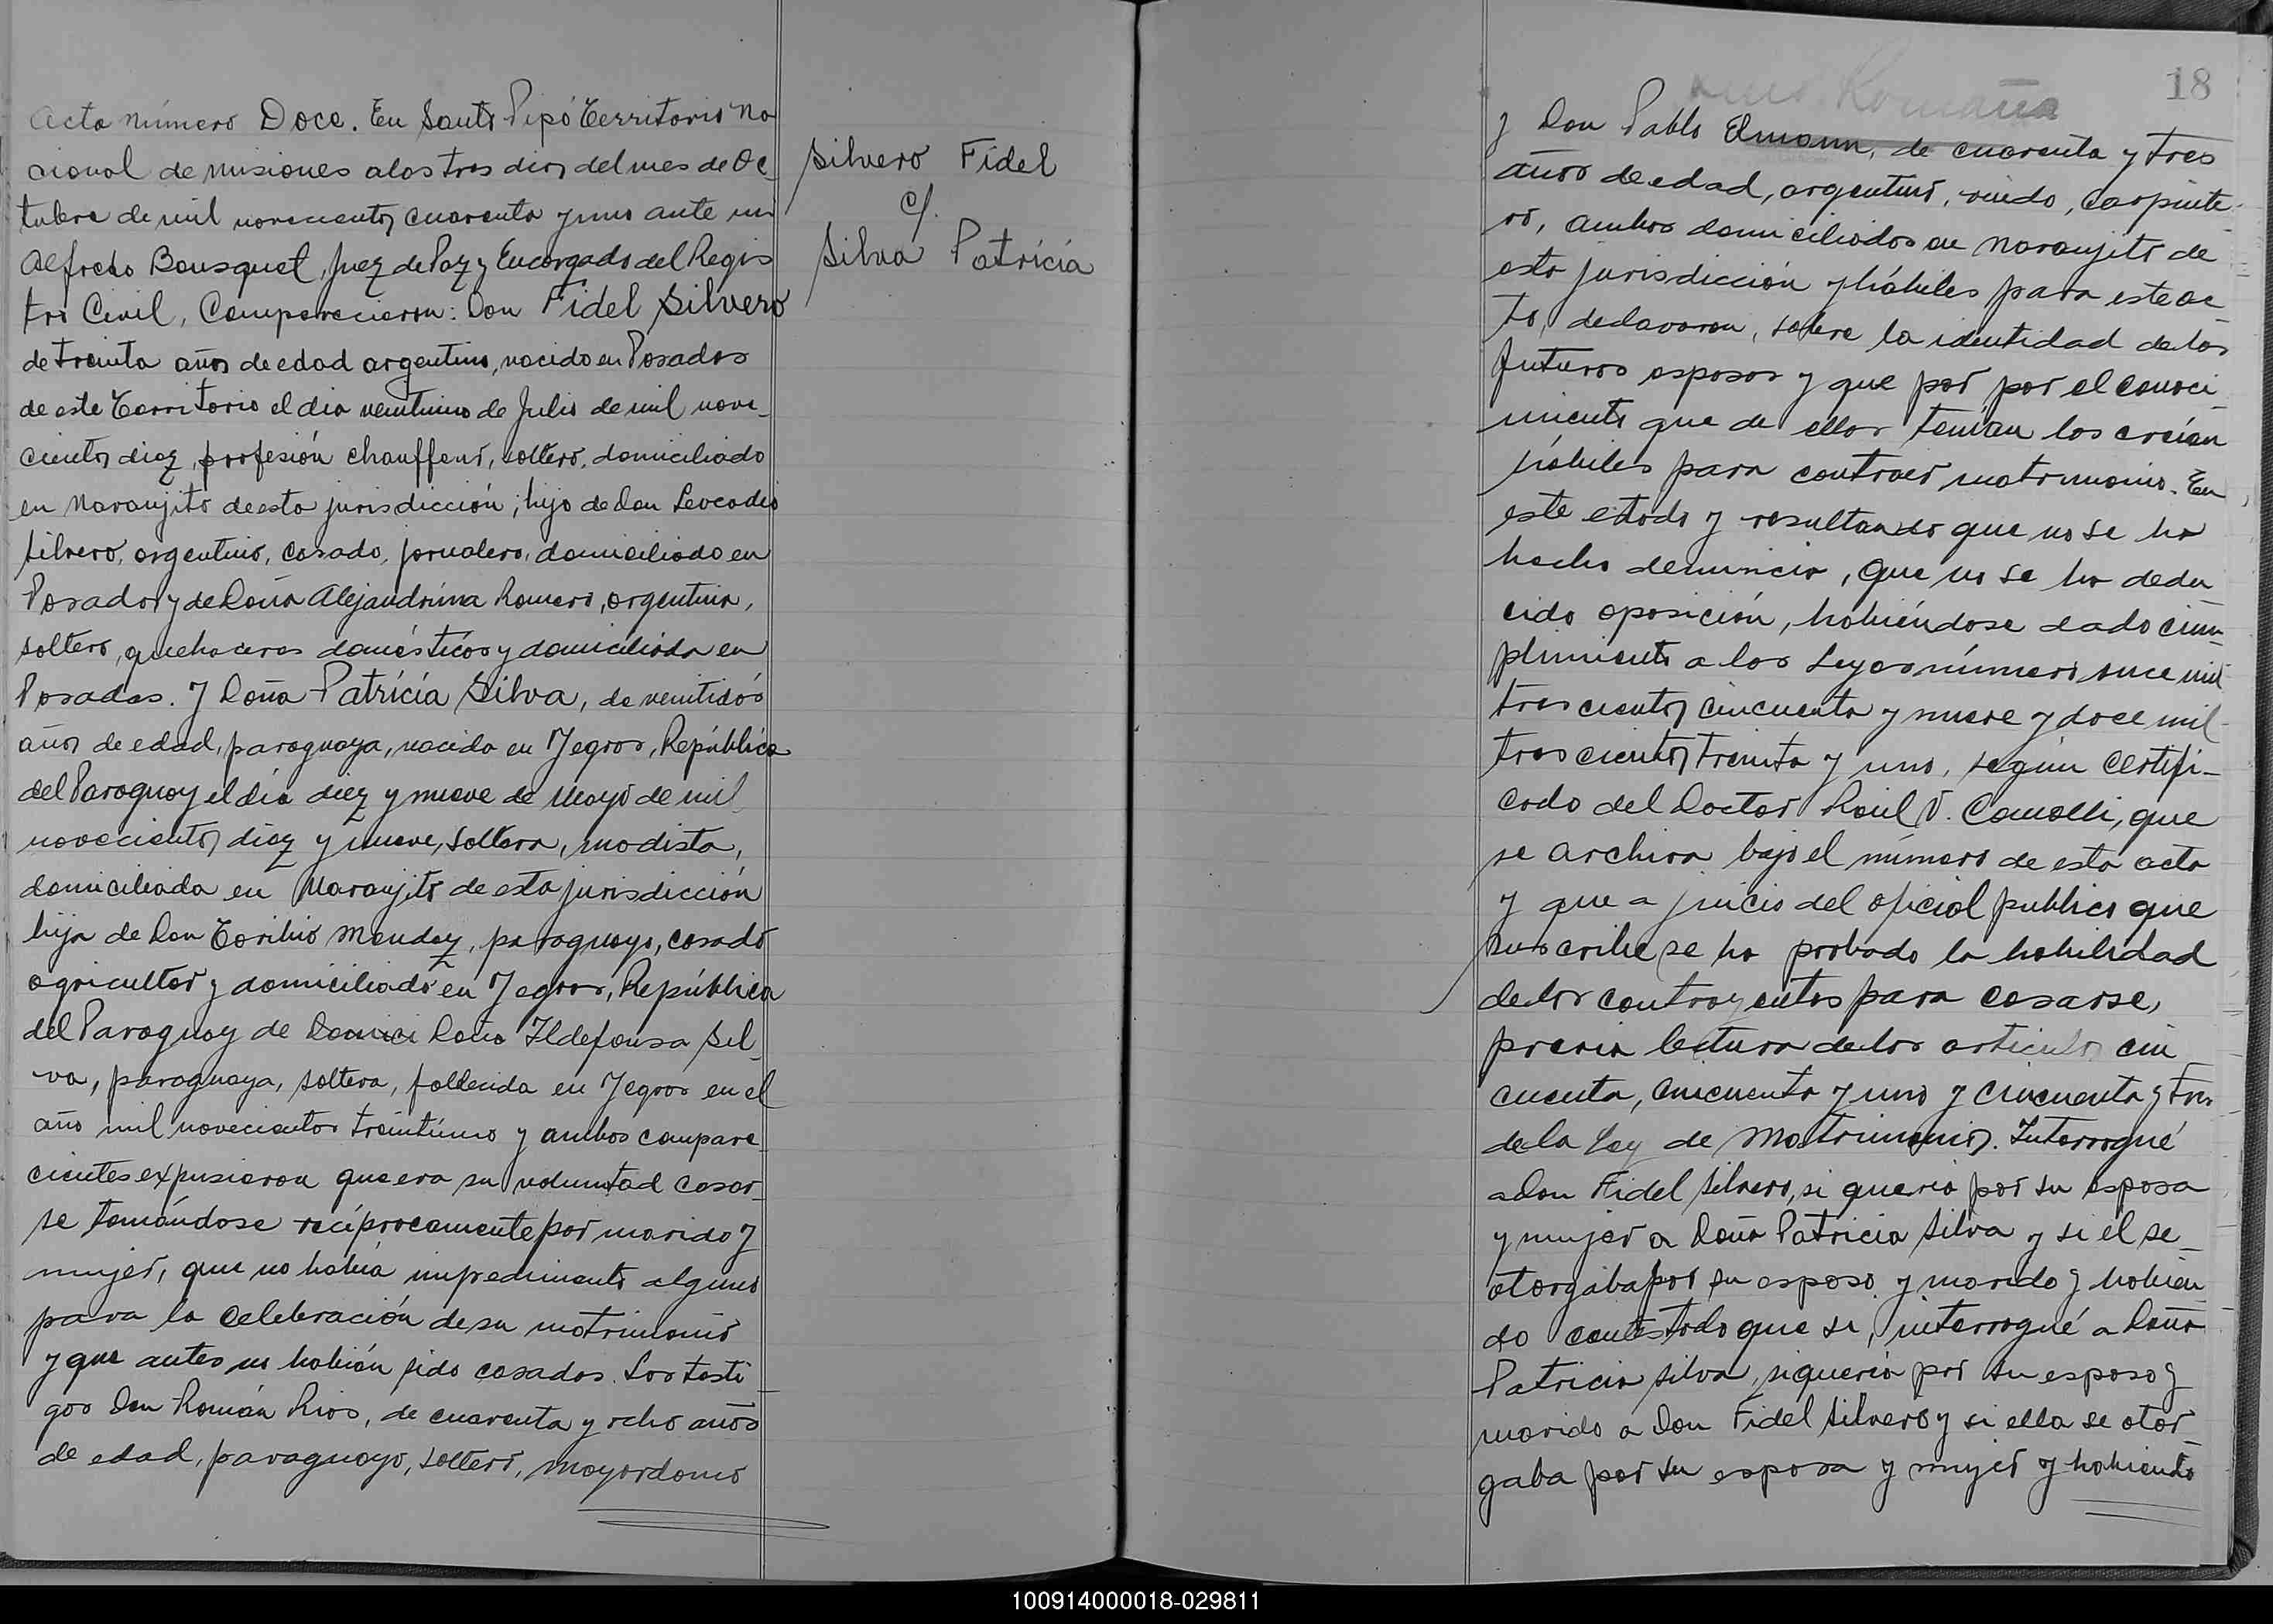 Acta número Doce. En Santo Pipó Territorio Na
cional de Misiones a los tres dias del mes de Oc_
tubre de mil novecientos cuarenta y uno ante mi
Alfredo Bousquet, Juez de Paz y Encargado del Regis
tro Civil, Comparecieron: Don Fidel Silvero
de treinta años de edad argentino, nacido en Posadas
de este Territorio el dia veintiuno de Julio de mil nove_
cientos diez, profesión chauffeur, soltero, domiciliado
en Naranjito de esta jurisdicción; hijo de Don Leocadio
Silvero, argentino, casado, jornalero, domiciliado en
Posadas y de Doña Alejandrina Romero, argentina,
soltera, quehaceres domésticos y domiciliada en
Posadas. Y Doña Patrícia Silva, de veintidós
años de edad, paraguaya, nacida en Yegros, República
del Paraguay el día diez y nueve de Mayo de mil
novecientos diez y nueve, soltera, modista,
domiciliada en Naranjito de esta jurisdicción
hija de Don Toribio Mendez, paraguayo, casado
agricultor y domiciliado en Yegros, República
del Paraguay de Doña Ildefonsa Sil_
va, paraguaya, soltera, fallecida en Yegros en el
año mil novecientos treintiuno y ambos compare_
cientes expusieron que era su voluntad casar_
se tomándose recíprocamente por marido y
mujer, que no había impedimento alguno
para la celebración de su matrimonio
y que antes no habián sido casados. Los testi_
gos Don Román Rios, de cuarenta y ocho años
de edad, paraguayo, soltero, mayordomo
Silvero Fidel
c/.
Silva Patrícia
18
Romaña
y Don Pablo Elmann, de cuarenta y tres
años de edad, argentino, viudo, carpinte_
ro, ambos domiciliados en Naranjito de
esta jurisdicción y hábiles para este ac_
to, declararon, sobre la identidad de los
futuros esposos y que por por el conoci_
miento que de ellos tenían los creían
hábiles para contraer matrimonio. En
este estado y resultando que no se ha
hecho denuncia, que no se ha dedu_
cido oposición, habiéndose dado cum_
plimiento a los Leyes número once mil
trescientos cincuenta y nueve y doce mil
trescientos treinta y uno, según certifi_
cado del Doctor Raúl V. Camolli, que
se archiva bajo el número de esta acta
y que a juicio del oficial publico que
suscribe se ha probado la habilidad
de los contrayentes para casarse,
previa lectura de los articulos cin_
cuenta, cincuenta y uno y cincuenta y tres
de la Ley de Matrimonio. Interrogué
a Don Fidel Silvero, si queria por su esposa
y mujer a Doña Patricia Silva y si el se_
otorgaba por su esposo y marido y habien_
do contestado que si, interrogué a Doña
Patricia Silva, si quería por su esposo y
marido a Don Fidel Silvero y si ella se otor_
gaba por su esposa y mujer y habiendo
100914000018-029811